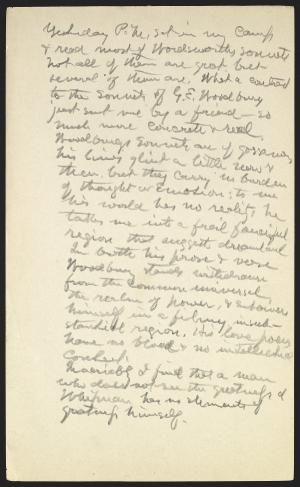 Yesterday P.M. sat in my Camp
& read most of Wordsworths sonnets
Not all of them are great but
several of them are. What a contrast
to the Sonnets of G.E. Woodbury
just sent me by a friend — so
much more concrete & real.
Woodburys Sonnets are of gossamer
his lines glint a little now &
then, but they carry no burden
of thought or emotion; to me
his world has no reality, he
takes me into a frail fanciful
region that suggests dreamland
In both his prose & verse
Woodbury stands withdrawn
from the common universal,
the realm of power, &
himself in a filmy unsub-
stantial region. His love poems
have no blood & no intellectual
Content.
Invariably I find that a man
who does not see the greatness of
Whitman has no elements of
greatness himself.